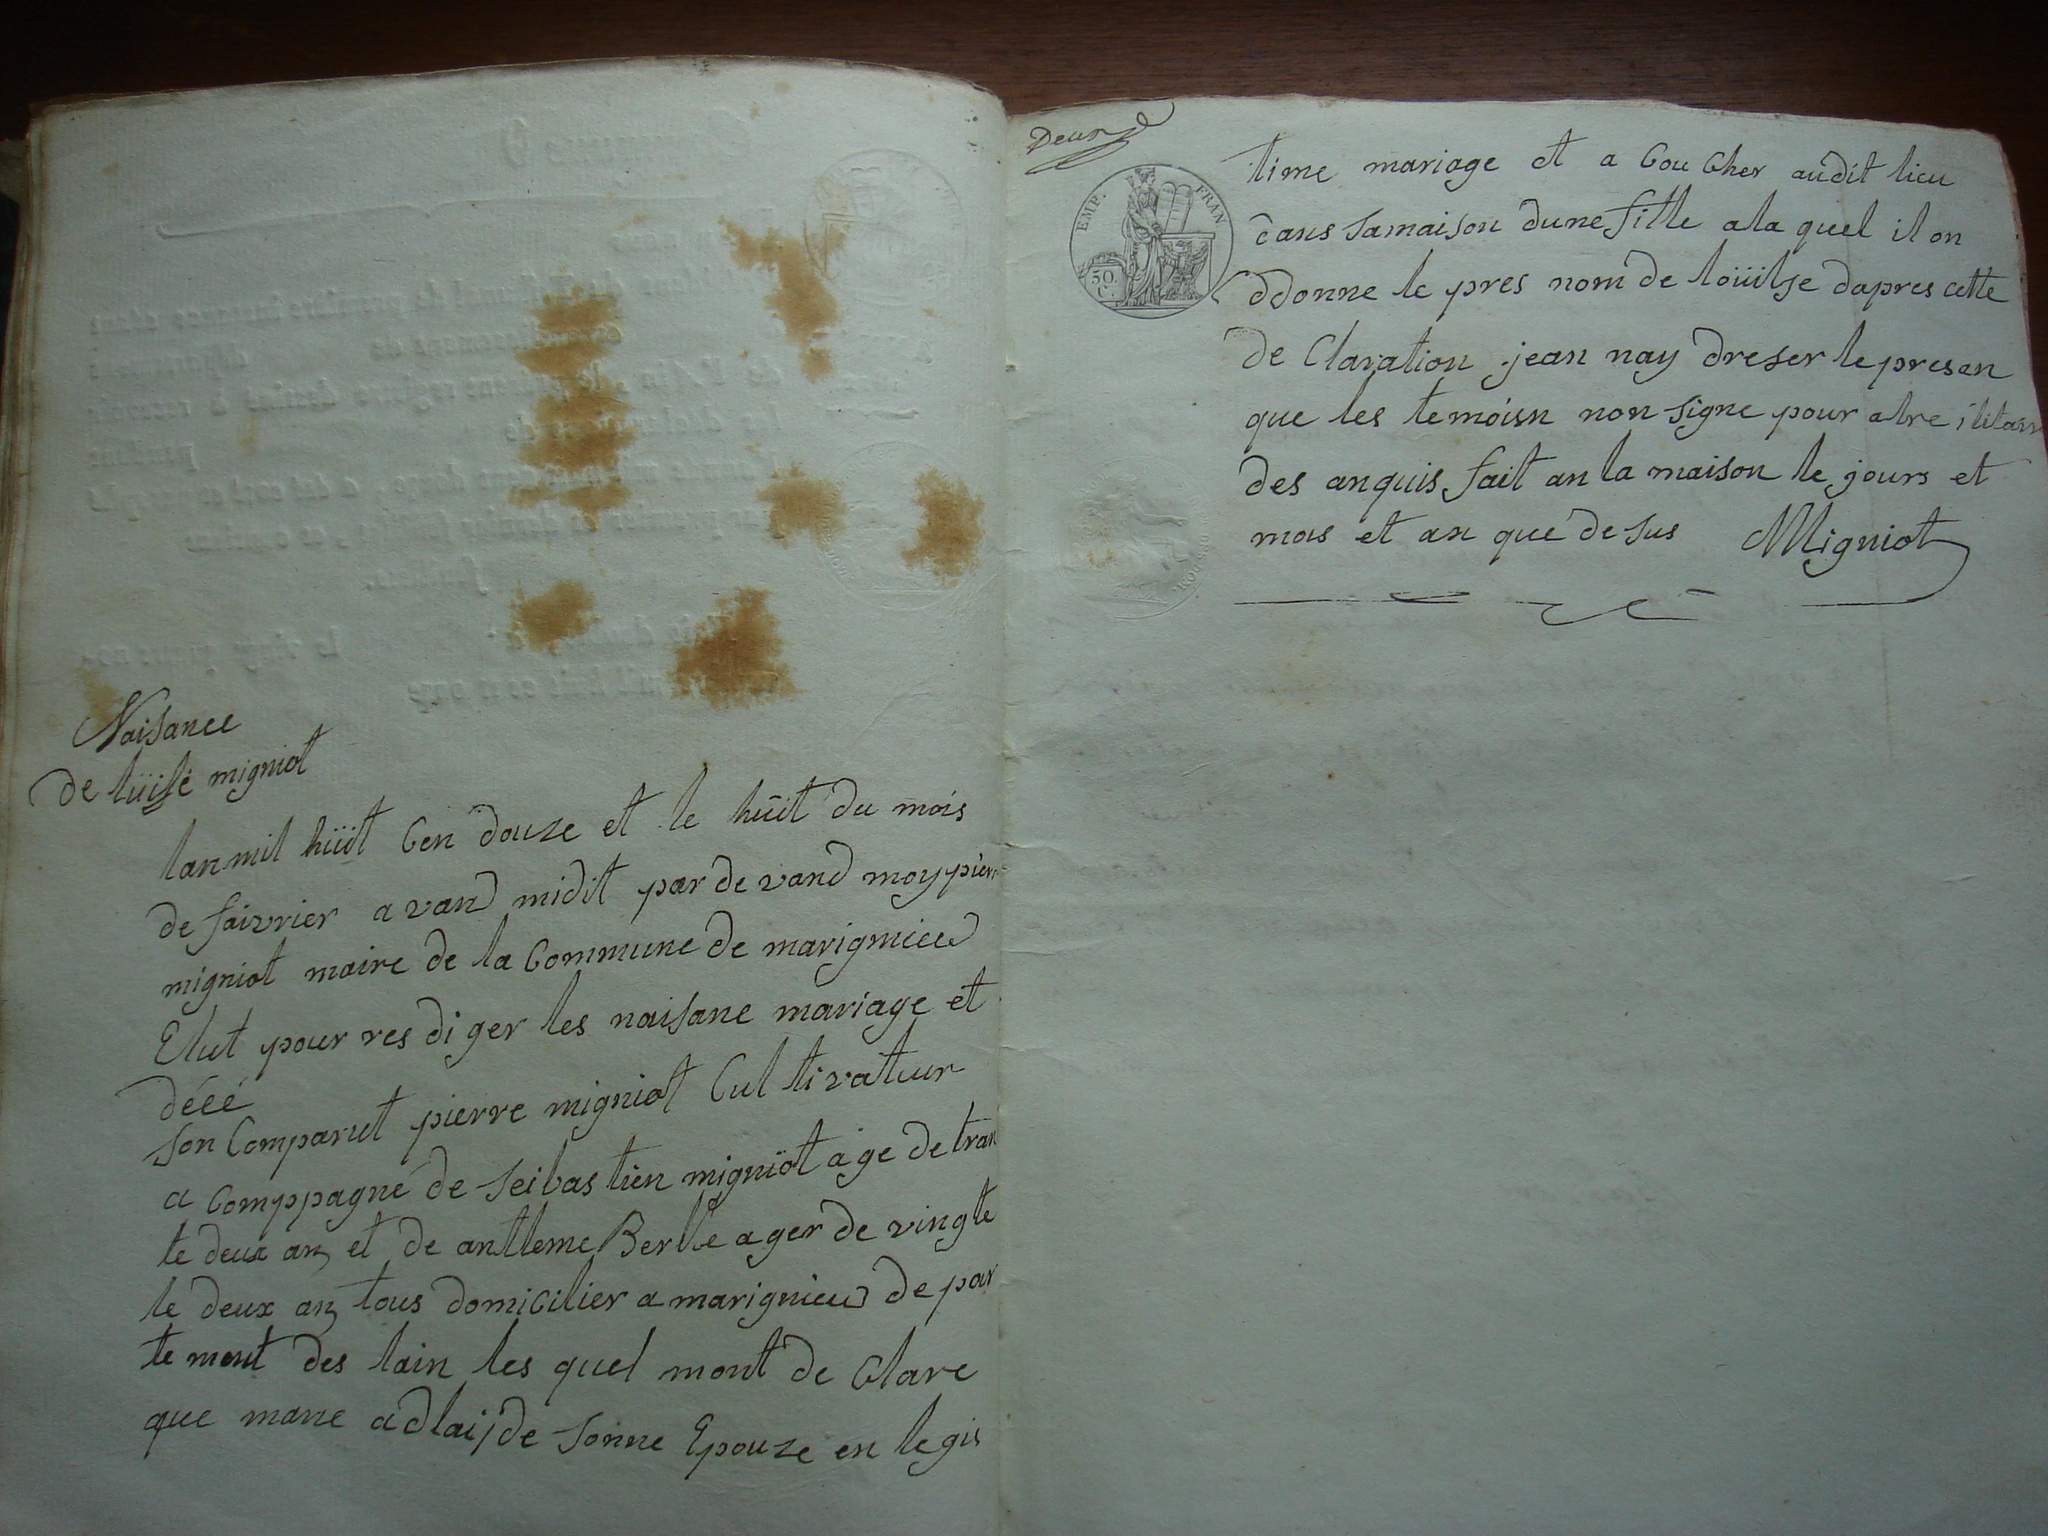 Naisance
de lüise migniot
lan mil hüit Cen douze et le hüit du mois
de faivrier avand midit par devand moy pierre
migniot maire de la Commune de marignieu
Elut pour resdiger les naisane mariage et
déeé
son Comparut pierre migniot Cultivateur
a Comppagné de seibastien migniot age de tran
te deux an et de antleme Berlle ager de vingte
te deux an tous domicilier a marignieu de par
te ment des lain les quel mont de Clare
que marie adlaijde sonne Epouze en legis
Deux
EMP. FRAN
50 C.
time mariage et a Cou Cher audit lieu
dans samaison dune fille ala quel il on
ddonne le pres nom de loüilse dapres cette
de Claration jean nay dreser le presan
que les temoisn non signe pour atre
des anquis fait an la maison le jours et
mois et an que de sus Migniot